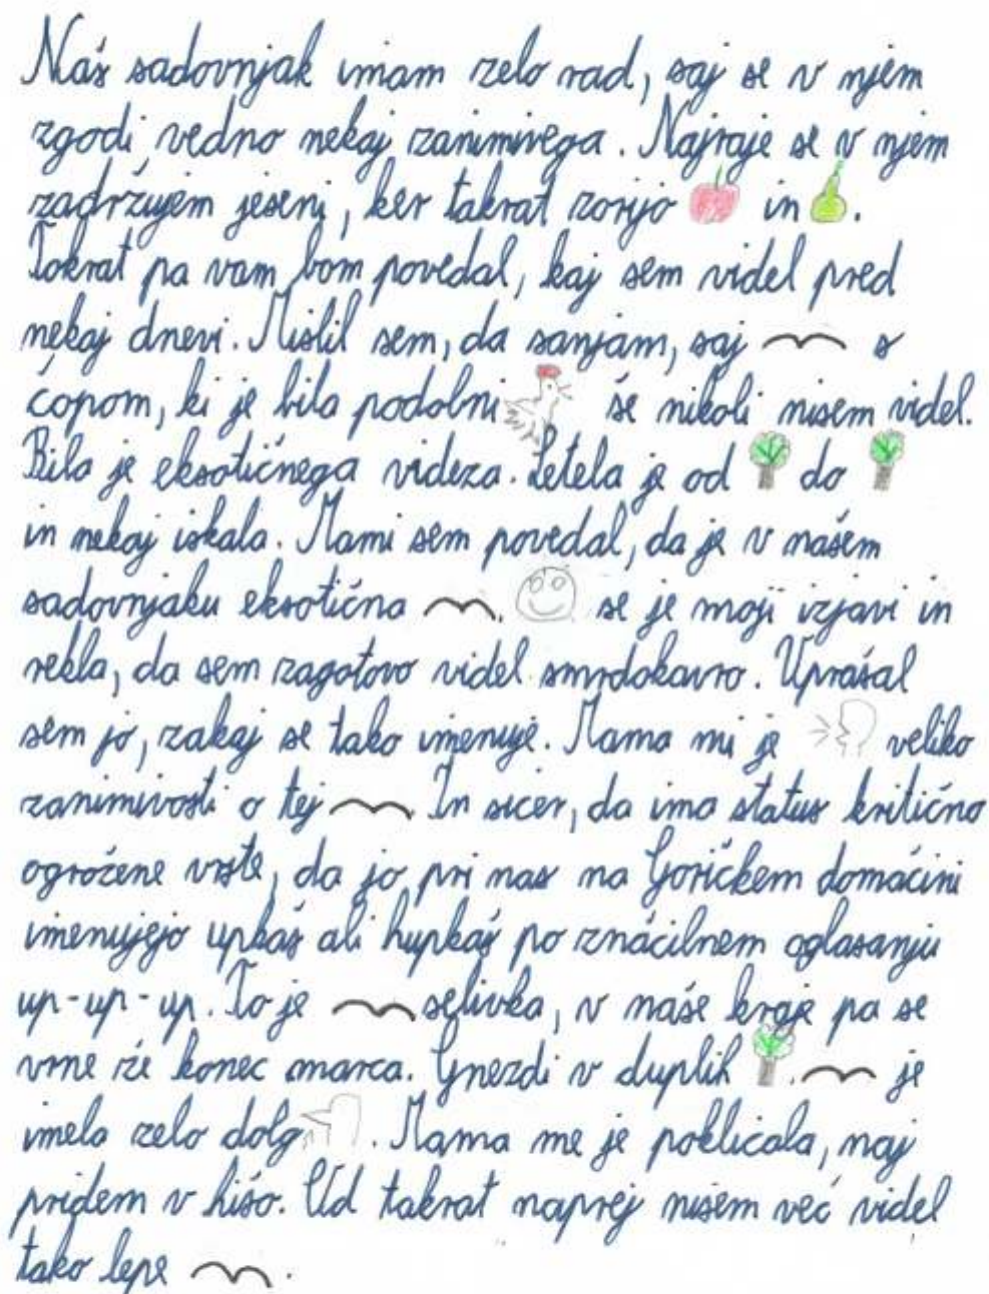 Naš sadovnjak imam zelo rad, saj se v njem
zgodi vedno nekaj zanimivega. Najraje se v njem
zadržujem jeseni, ker takrat zorijo in .
Tokrat pa vam bom povedal, kaj sem videl pred
nekaj dnevi. Mislil sem, da sanjam, saj s
čopom, ki je bila podobni še nikoli nisem videl.
Bila je eksotičnega videza. Letela je od do
in nekaj iskala. Mami sem povedal, da je v našem
sadovnjaku eksotična . se je moji izjavi in
rekla, da sem zagotovo videl smrdokavro. Vprašal
sem jo, zakaj se tako imenuje. Mama mi je veliko
zanimivosti o tej . In sicer, da ima status kritično
ogrožene vrste, da jo pri nas na Goričkem domačini
imenujejo upkaš ali hupkaš po značilnem oglašanju
up-up-up. To je selivka, v naše kraje pa se
vrne že konec marca. Gnezdi v duplih . je
imela zelo dolg . Mama me je poklicala, naj
pridem v hišo. Od takrat naprej nisem več videl
tako lepe .